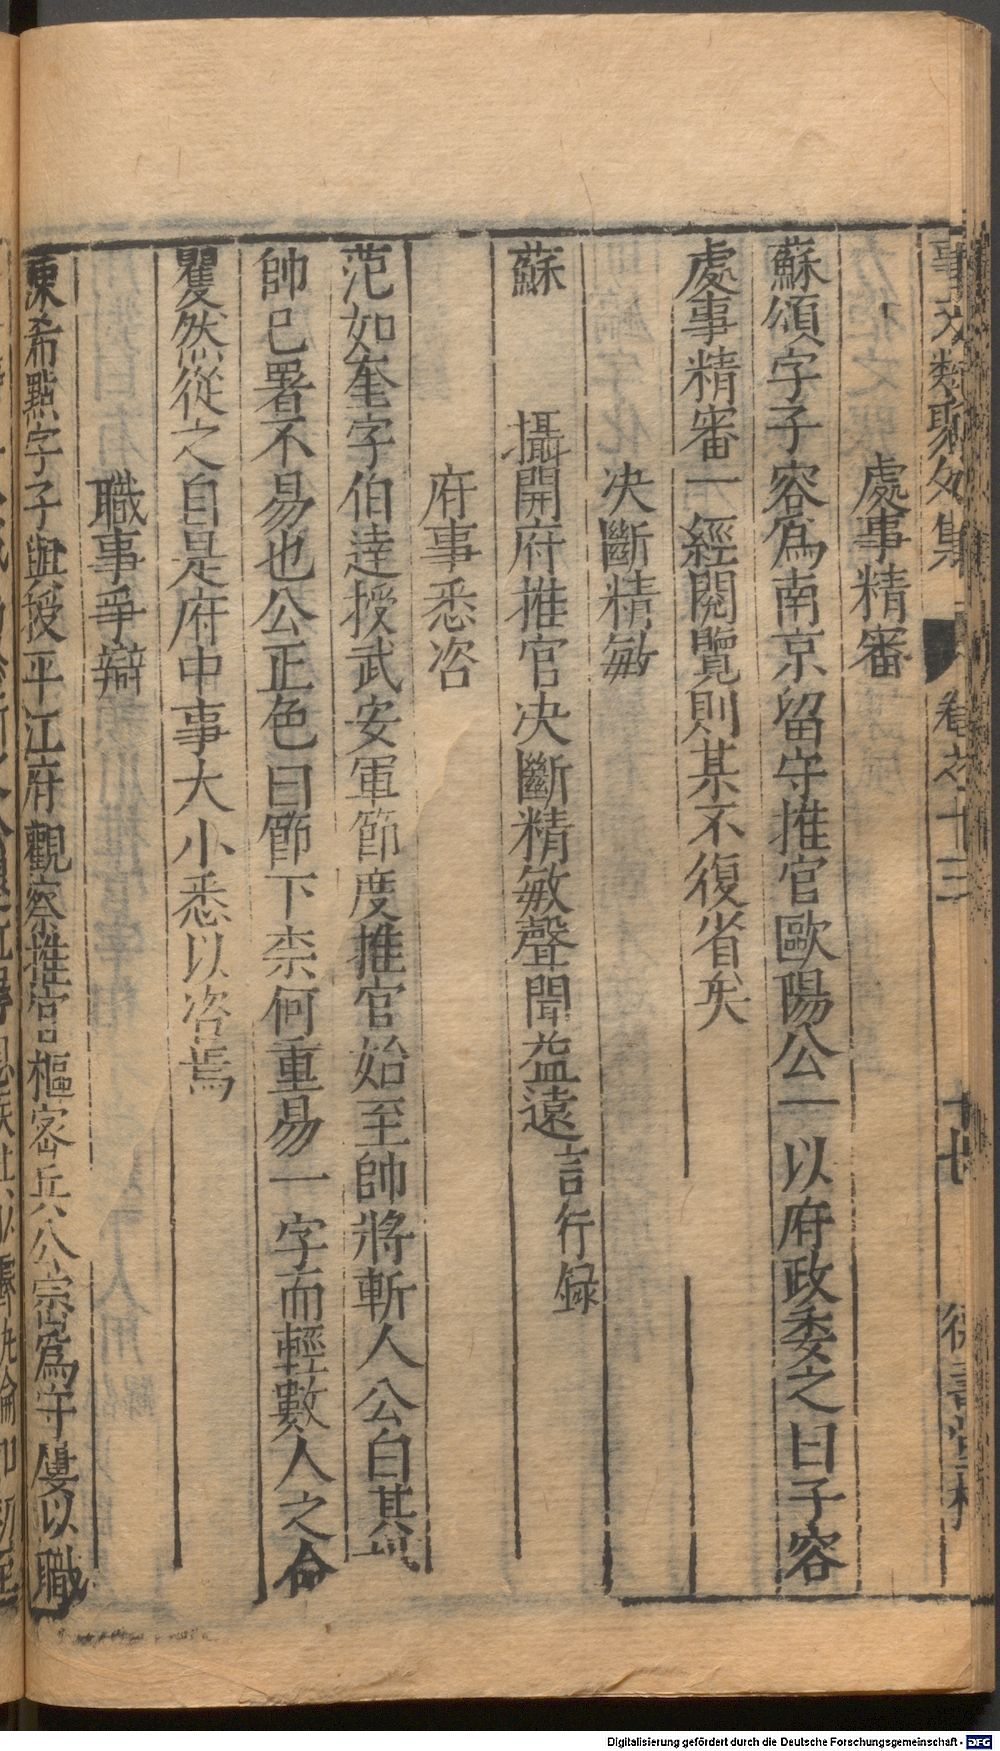 事文類聚外集 卷之十三 十七 德壽堂梓
處事精審
蘇頌字子容爲南京留守推官歐陽公一以府政委之曰子容
處事精審一經閱覽則某不復省矣
决斷精敏
蘇 攝開府推官决斷精敏聲聞益遠言行録
府事悉咨
范如奎字伯逹授武安軍節度推官始至帥將斬人公白其
帥已署不易也公正色曰節下柰何重易一字而輕數人之命
矍然從之自是府中事大小悉以咨焉
職事爭辯
陳希點字子與授平江府觀察推官樞宻兵公宗爲守屢以職
Digitalisierung gefördert durch die Deutsche Forschungsgemeinschaft - DFG